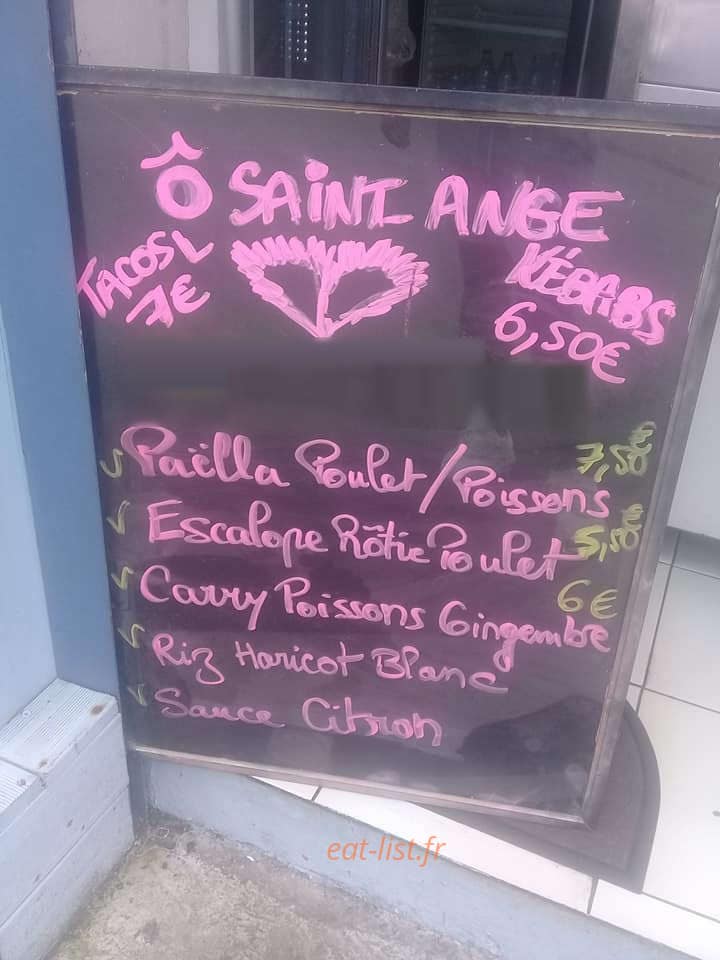 Ô SAINT ANGE
TACOS L
7€
KÉBABS
6,50€
Paëlla Poulet/Poissons 7,50€
Escalope Rôtie Poulet 5,50€
Carry Poissons Gingembre 6€
Riz Haricot Blanc
Sauce Citron
eat-list.fr